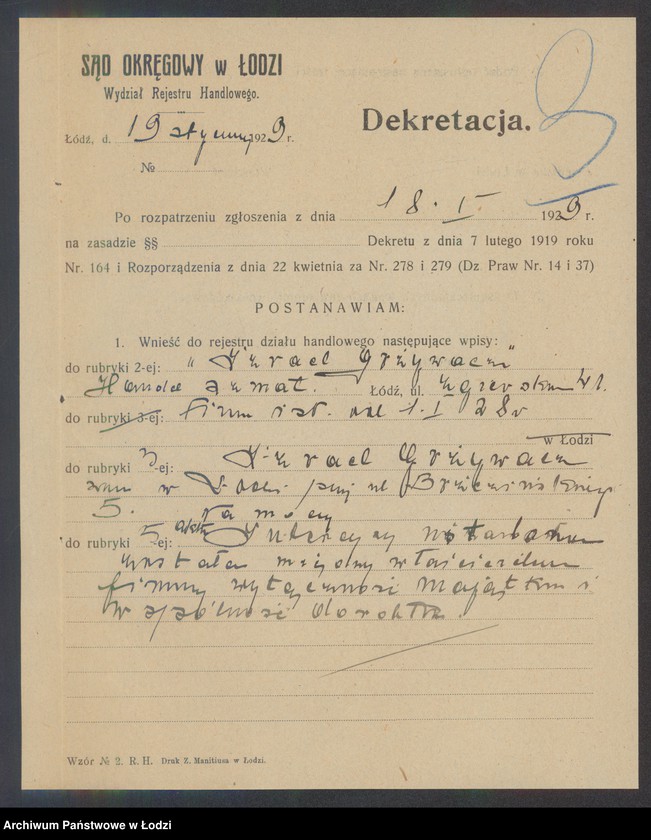 SĄD OKRĘGOWY w ŁODZI
Wydział Rejestru Handlowego.
Łódź, d. 19 stycznia 1929 r.
Dekretacja.
3
№
Po rozpatrzeniu zgłoszenia z dnia 18. I 1929 r.
na zasadzie §§ Dekretu z dnia 7 lutego 1919 roku
Nr. 164 i Rozporządzenia z dnia 22 kwietnia za Nr. 278 i 279 (Dz Praw Nr. 14 i 37)
POSTANAWIAM:
1. Wnieść do rejestru działu handlowego następujące wpisy:
do rubryki 2-ej: "Izrael Grzywacz"
Handel szmat. Łódź, ul. Zgierska № 1.
do rubryki 3-ej: Firma ist. od 1. I 28 r
w Łodzi
do rubryki 3-ej: Izrael Grzywacz
zam w Łodzi przy ul Brzezińskiej
5. Na mocy
do rubryki 5-ej: aktu
została między właścicielem
firmy wyłączność majątku i
wspólność dorobku.
Wzór № 2. R. H. Druk Z. Manitiusa w Łodzi.
Archiwum Państwowe w Łodzi